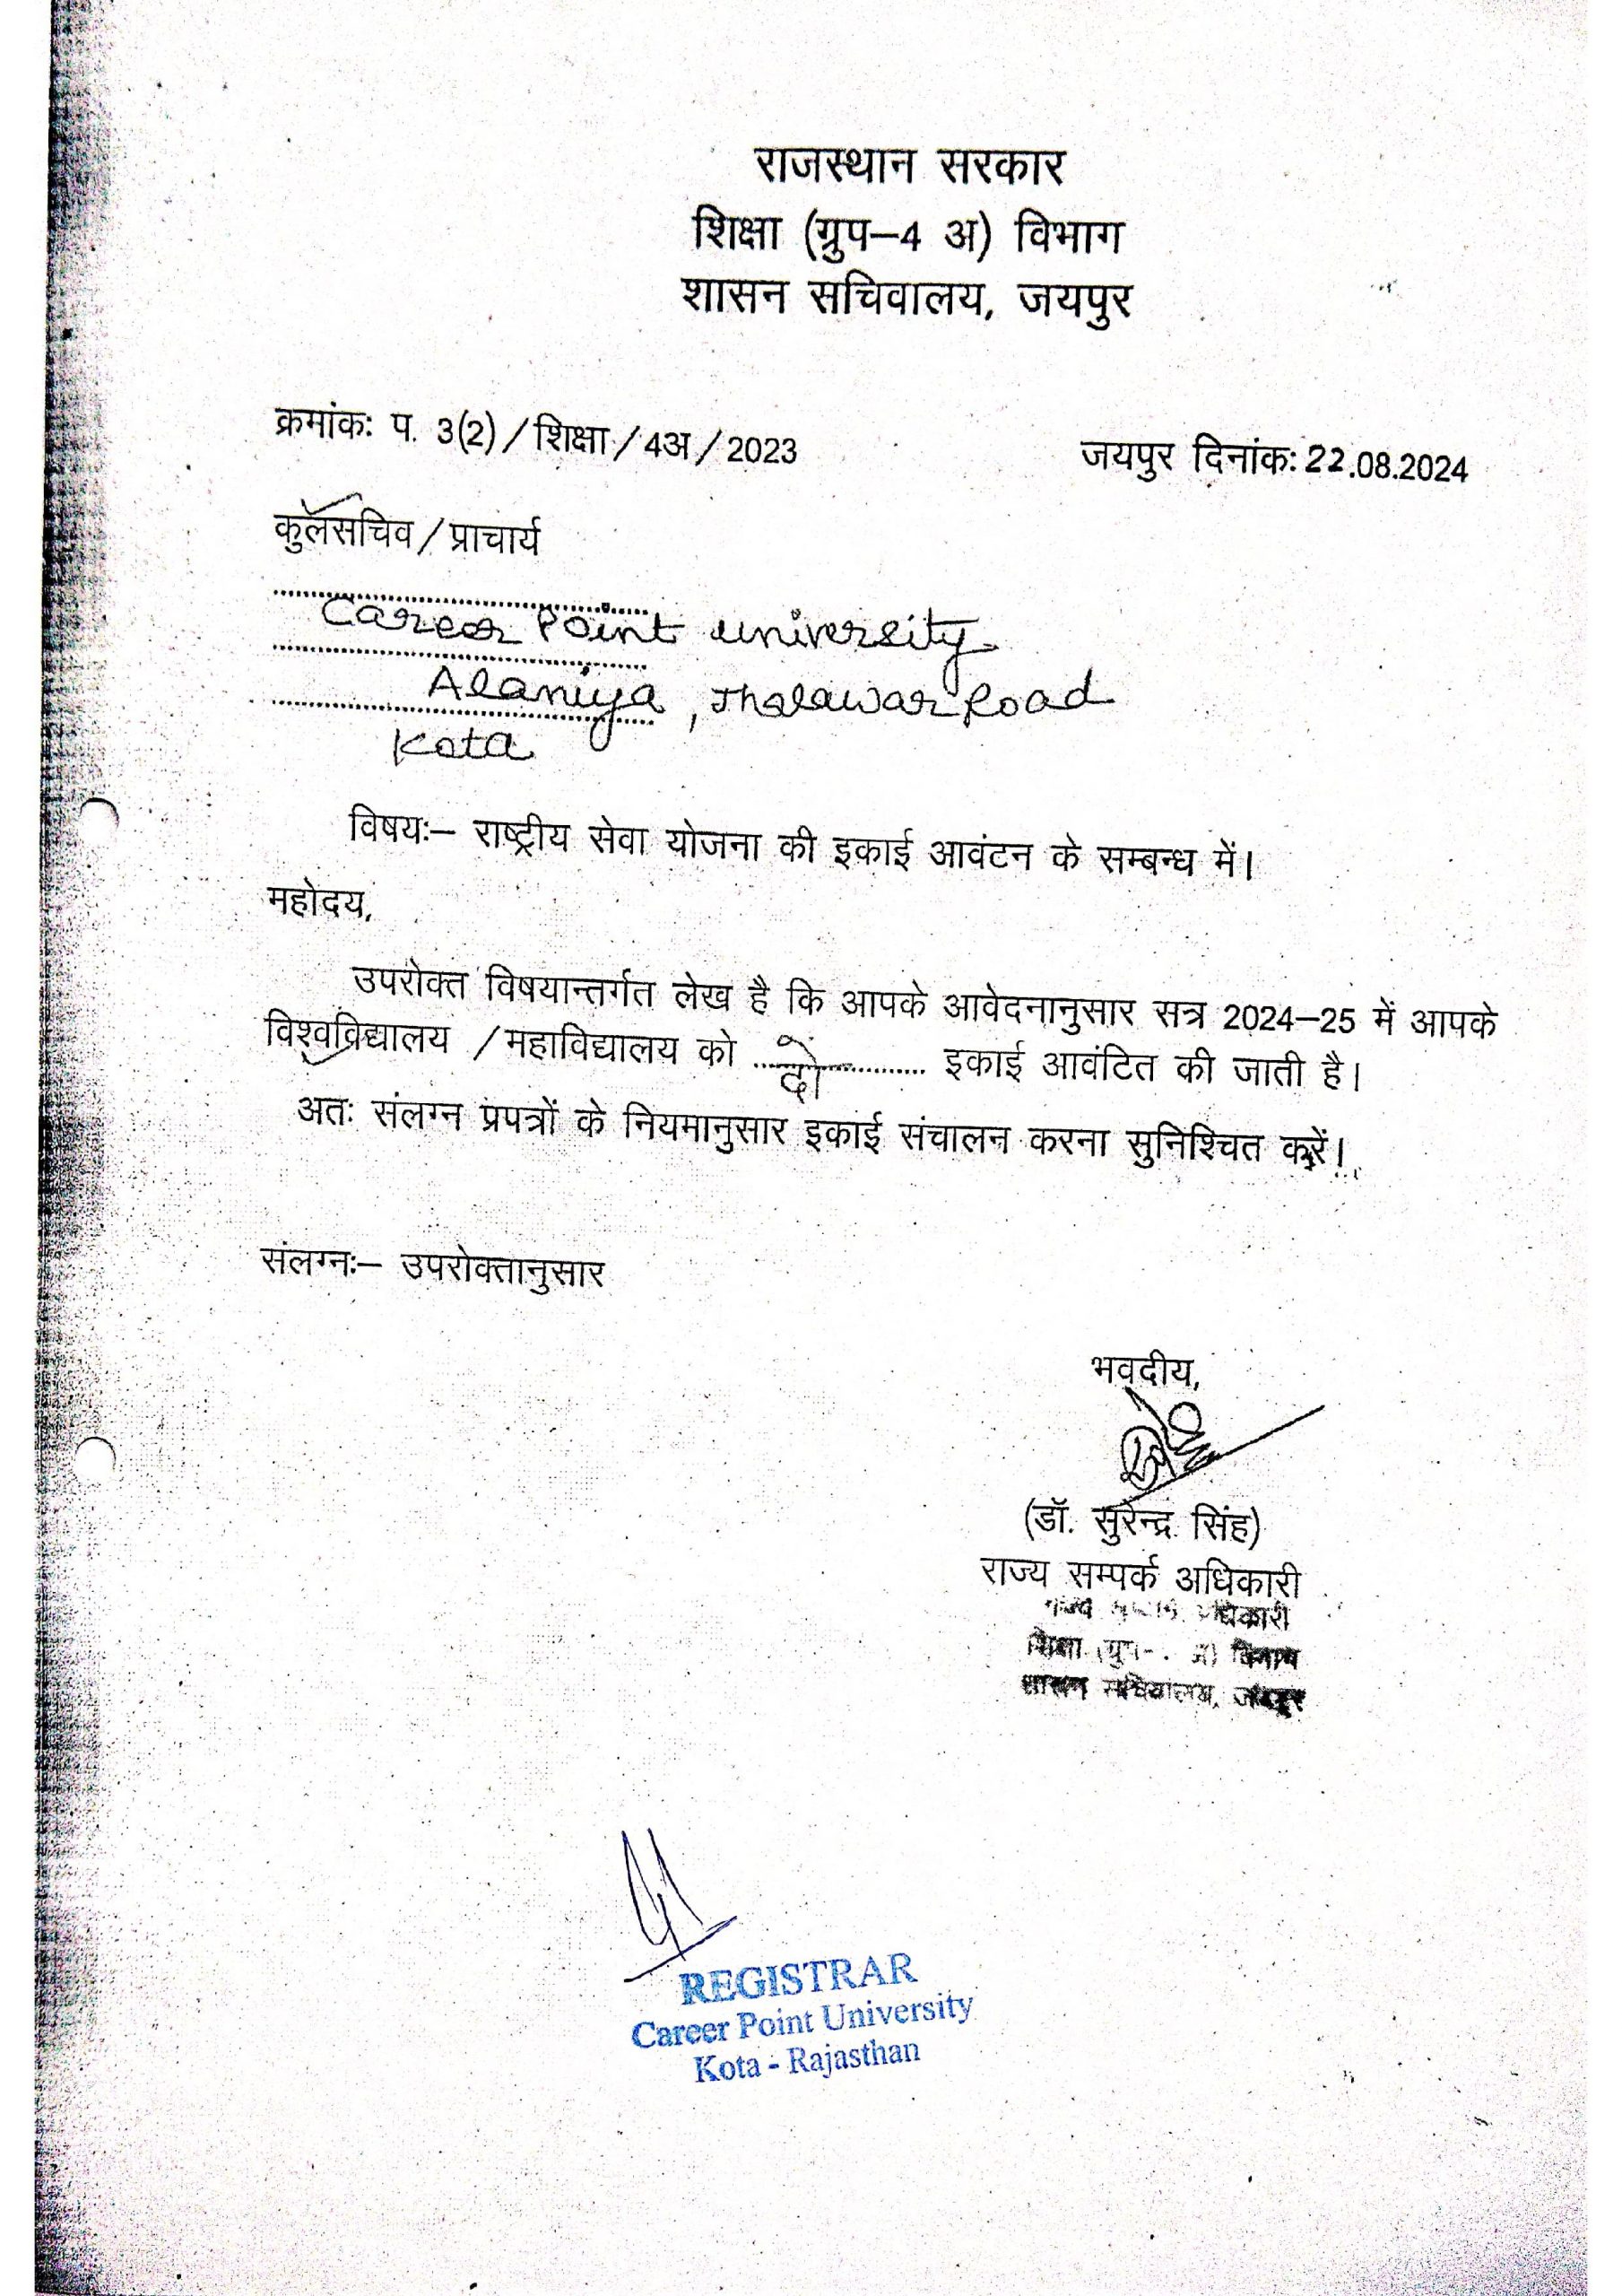 राजस्थान सरकार
शिक्षा (ग्रुप–4 अ) विभाग
शासन सचिवालय, जयपुर
क्रमांकः प. 3(2)/शिक्षा/4अ/2023 जयपुर दिनांकः 22.08.2024
कुलसचिव/प्राचार्य
Career Point university
Alaniya, Jhalawar Road
Kota
विषयः– राष्ट्रीय सेवा योजना की इकाई आवंटन के सम्बन्ध में।
महोदय,
उपरोक्त विषयान्तर्गत लेख है कि आपके आवेदनानुसार सत्र 2024–25 में आपके
विश्वविद्यालय /महाविद्यालय को ....दो.......... इकाई आवंटित की जाती है।
अतः संलग्न प्रपत्रों के नियमानुसार इकाई संचालन करना सुनिश्चित करें।
संलग्नः– उपरोक्तानुसार
भवदीय,
(डॉ. सुरेन्द्र सिंह)
राज्य सम्पर्क अधिकारी
राज्य अधिकारी
शिक्षा विभाग
शासन सचिवालय, जयपुर
REGISTRAR
Career Point University
Kota - Rajasthan